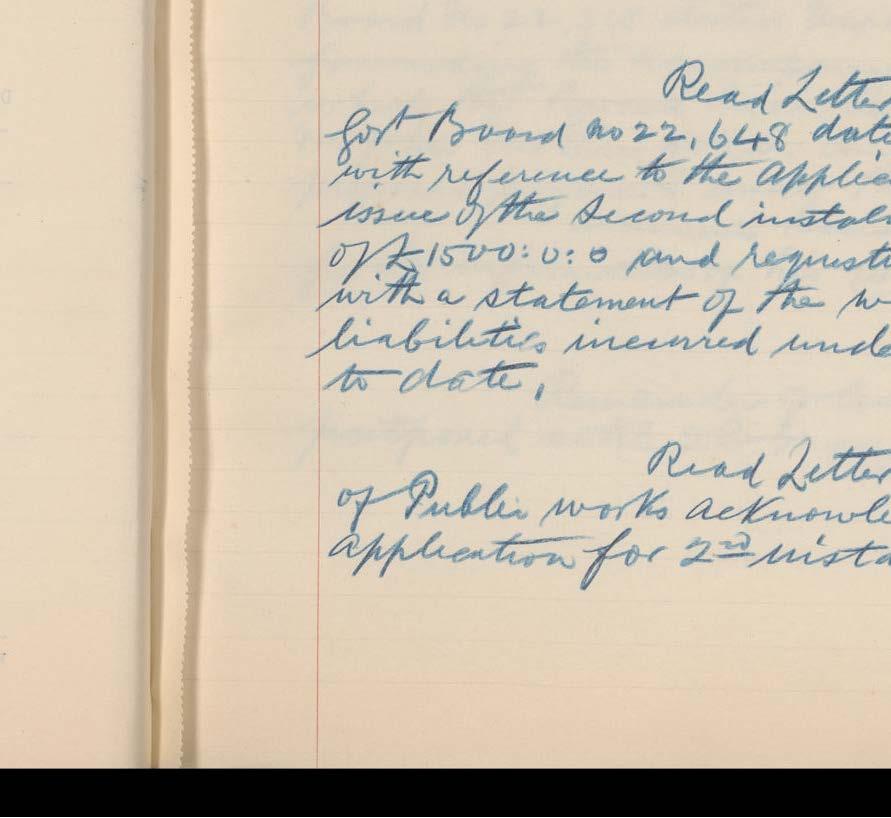 Read Letter
Govt Board no 22,648 date
with reference to the applic
issue of the Second instal
of £1500:0:0 and requesti
with a statement of the w
liabilities incurred unde
to date,
Read Letter
of Public works acknowle
application for 2nd insta